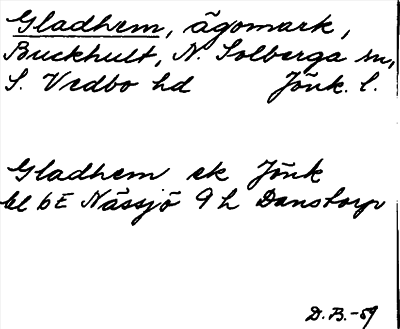 Gladhem, ägomark,
Buckhult, N. Solberga sn,
S. Vedbo hd Jönk. l.
Gladhem ek Jönk
bl 6E Nässjö 9 h Danstorp
D. B. -59